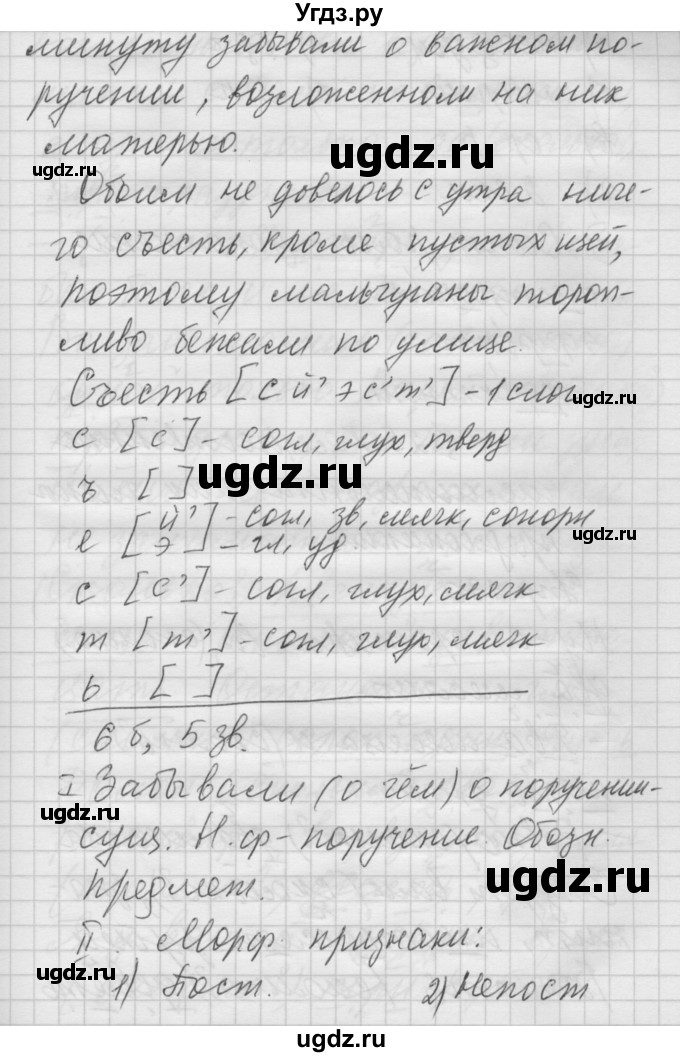 Угдз.ру
минуту забывали о важном по-
ручении, возложенном на них
матерью.
Обоим не довелось с утра ниче-
го съесть, кроме пустых щей,
поэтому мальчуганы тороп-
ливо бежали по улице.
Съесть [с й' э с' т'] - 1 слог
с [с] - согл, глух, тверд
ъ [ ]
е [й' - согл, зв, мягк, сонорн
э] - гл, уд.
с [с'] - согл, глух, мягк
т [т'] - согл, глух, мягк
ь [ ]
6 б, 5 зв.
I Забывали (о чём) о поручении-
сущ. Н.ф - поручение. Обозн.
предмет.
II. Морф. признаки:
1) Пост. 2) Непост
ugdz.ru
ugdz.ru
ugdz.ru
ugdz.ru
ugdz.ru
ugdz.ru
ugdz.ru
ugdz.ru
ugdz.ru
ugdz.ru
ugdz.ru
ugdz.ru
ugdz.ru
ugdz.ru